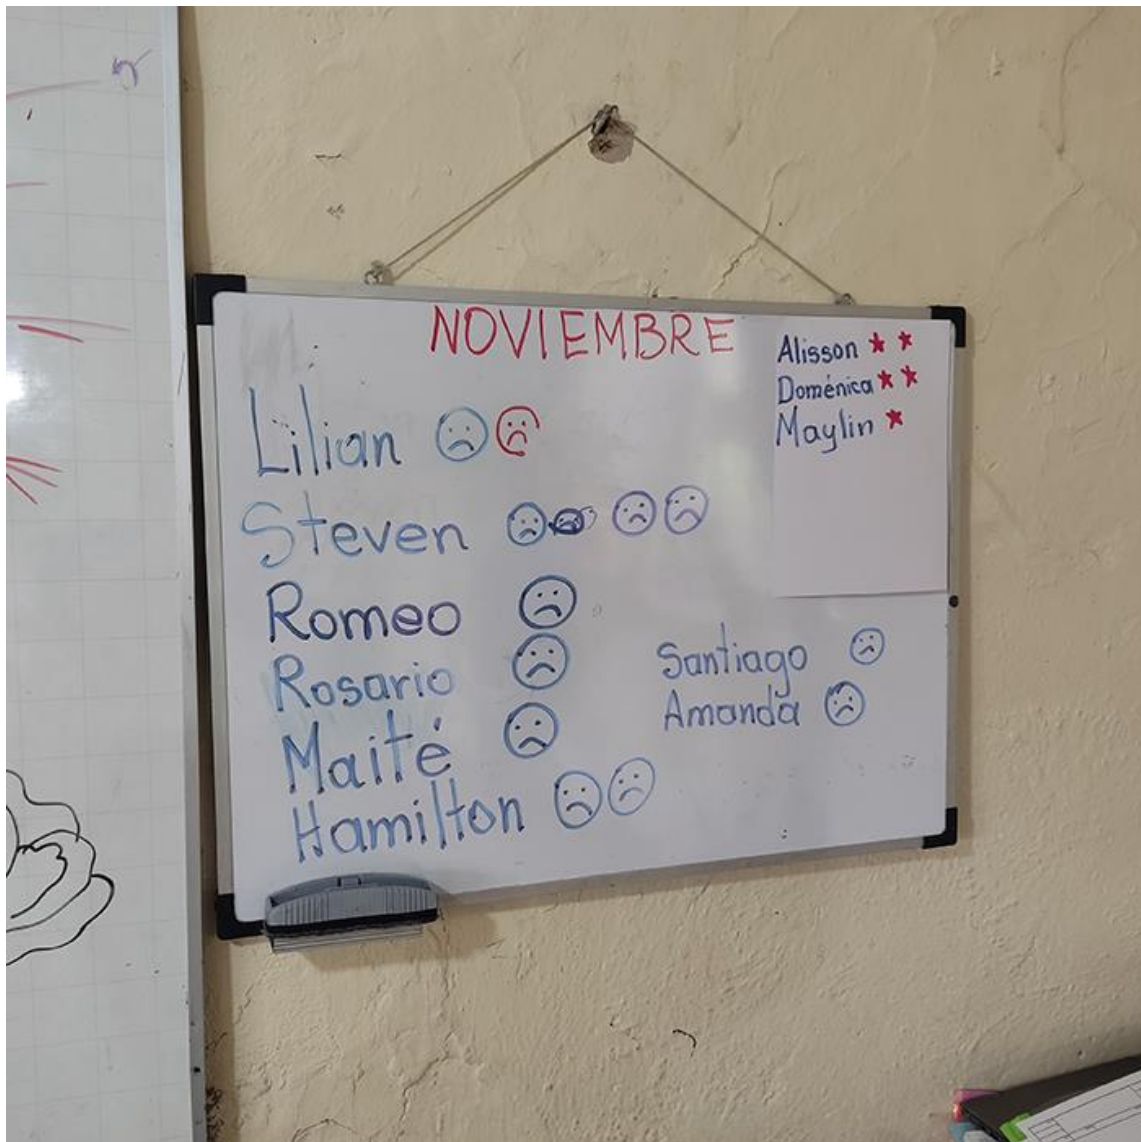 NOVIEMBRE
Alisson
Doménica
Maylin
Lilian
Steven
Romeo
Rosario
Maité
Hamilton
Santiago
Amanda